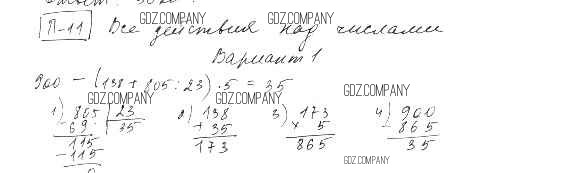 GDZ.COMPANY GDZ.COMPANY
П-11 Все действия над числами
Вариант 1
900 - (138 + 805 : 23) · 5 = 35
GDZ.COMPANY GDZ.COMPANY GDZ.COMPANY
1) 805 23 2) 138 3) 173 4) 900
- 69 35 + 35 × 5 - 865
115 173 865 35
- 115
0
GDZ.COMPANY